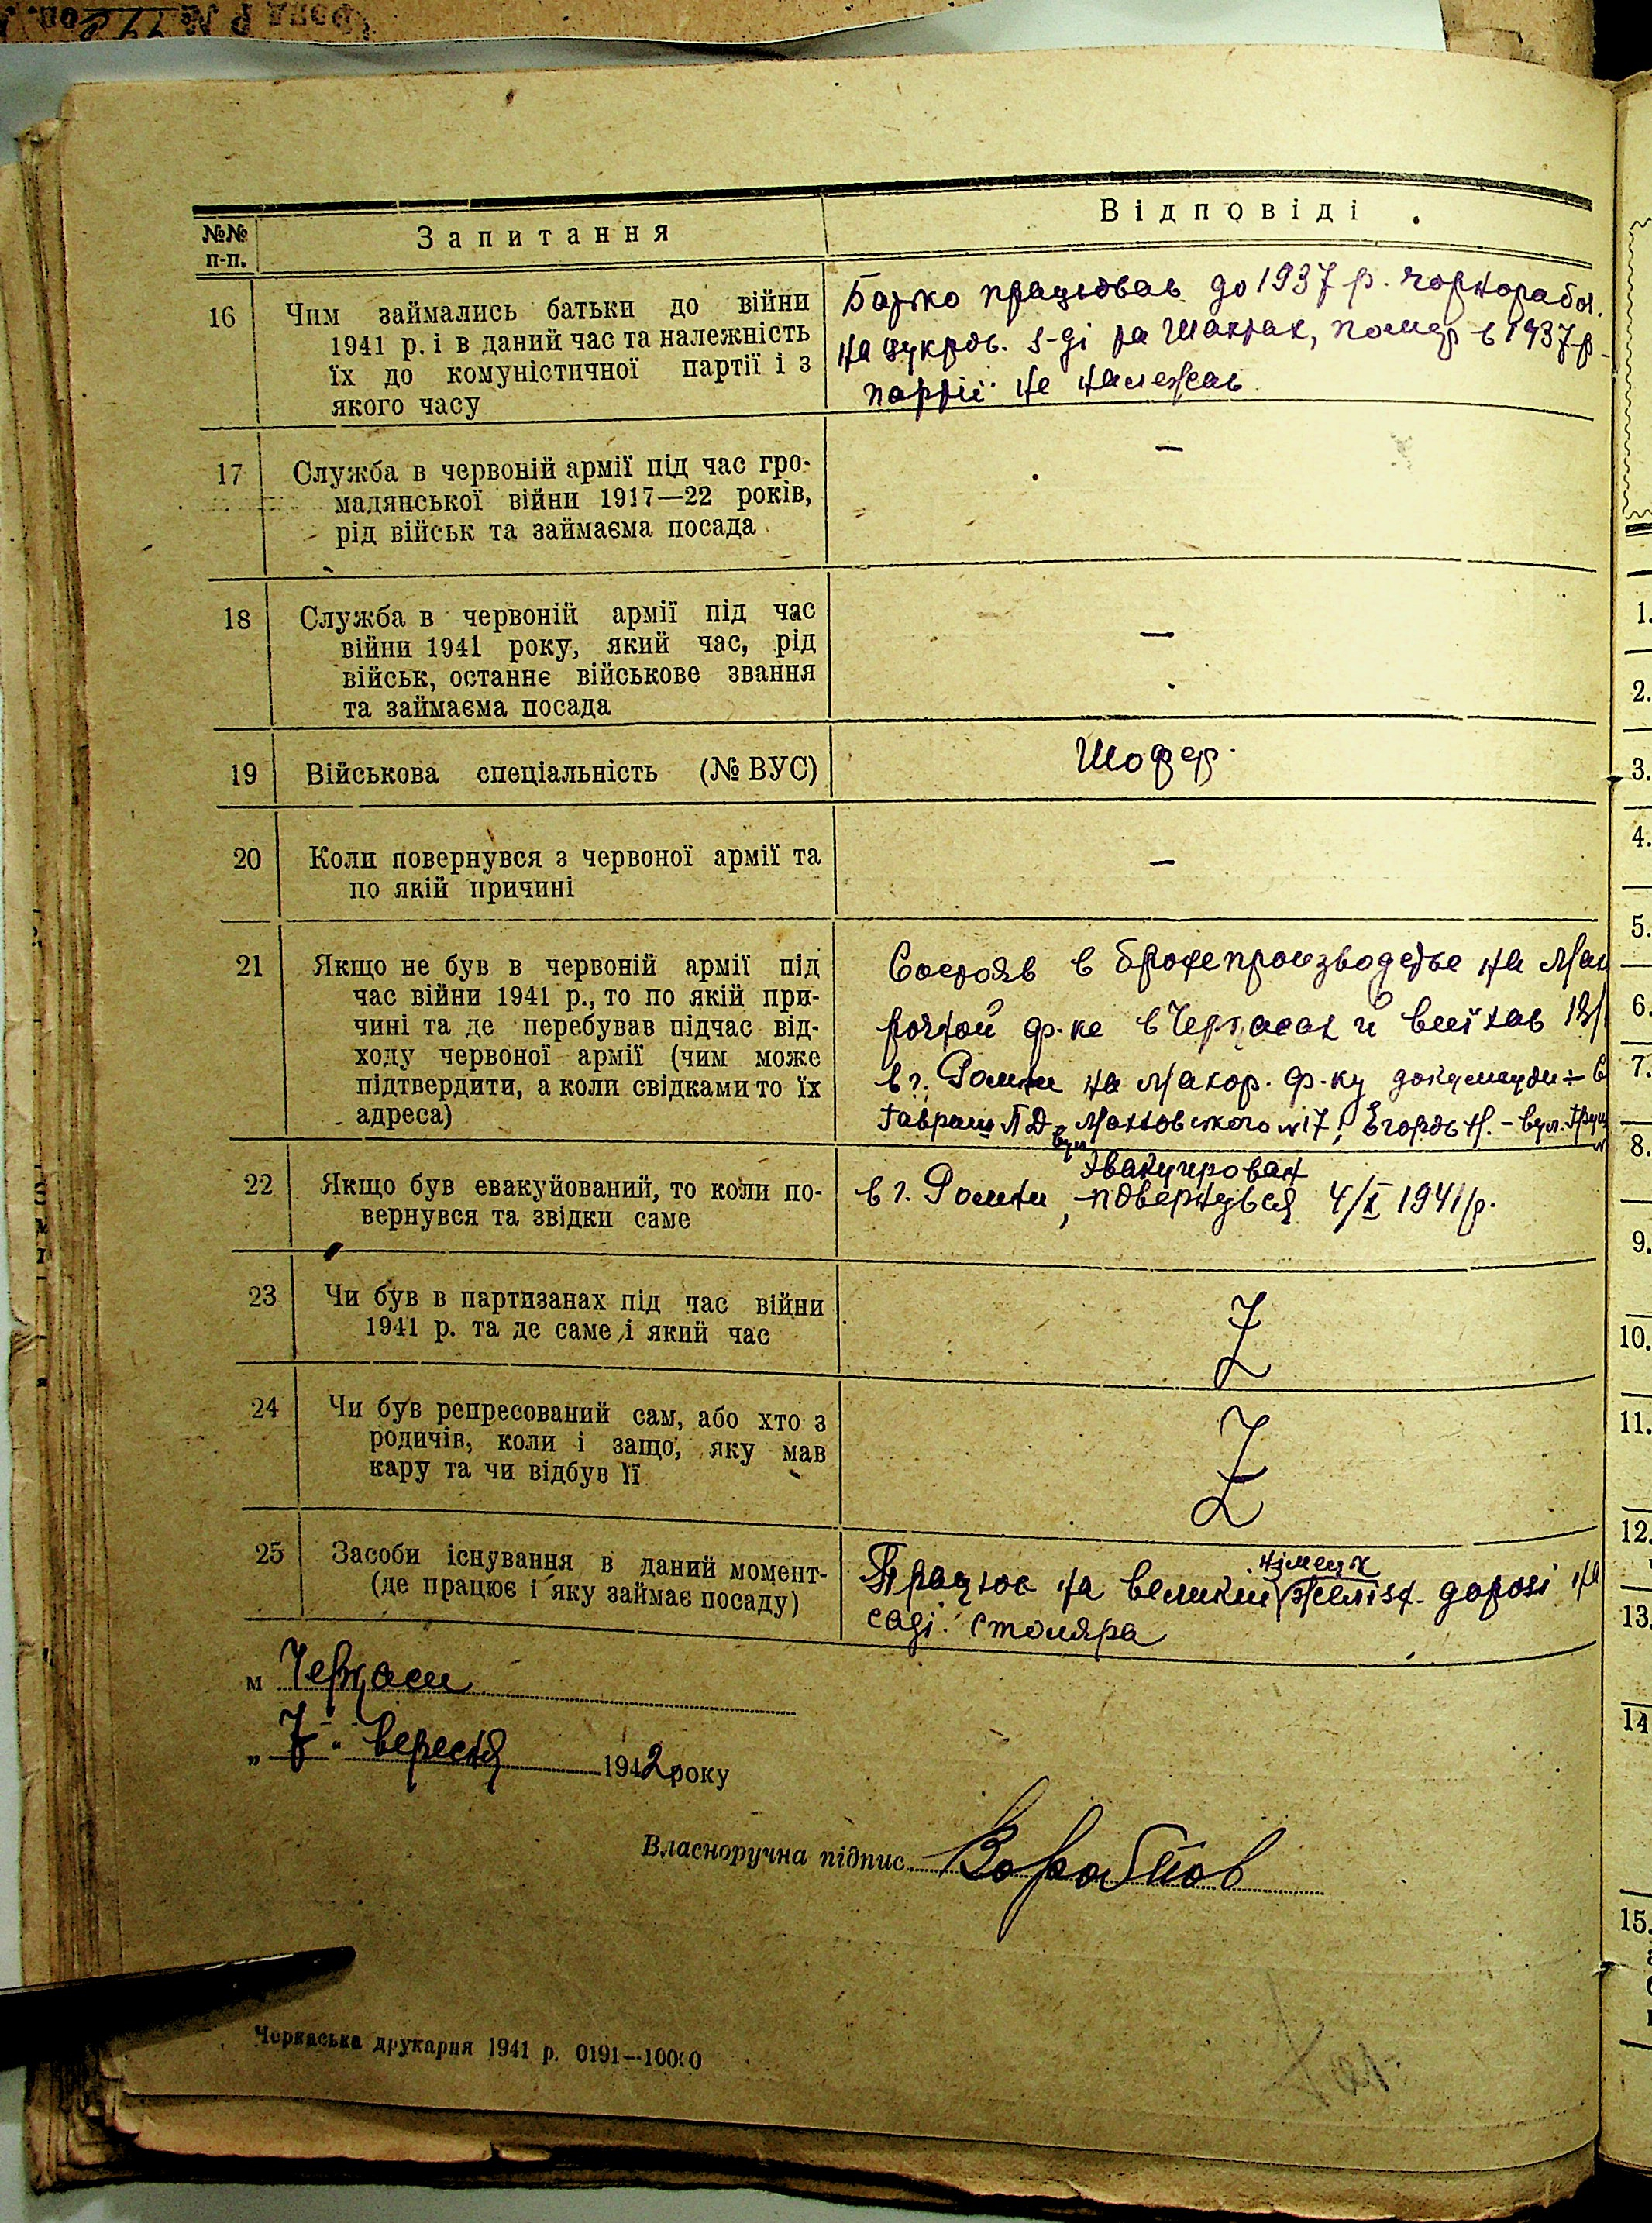 №№ п-п.
Запитання
Відповіді
16
Чим займались батьки до війни
1941 р. і в даний час та належність
їх до комуністичної партії і з
якого часу
Батько працював до 1937 р. чорнорабоч.
на цукров. з-ді та шахтах, помер в 1937 р.
партії не належав
17
Служба в червоній армії під час гро-
мадянської війни 1917—22 років,
рід військ та займаєма посада
—
18
Служба в червоній армії під час
війни 1941 року, який час, рід
військ, останнє військове звання
та займаєма посада
—
19
Військова спеціальність (№ ВУС)
Шофер
20
Коли повернувся з червоної армії та
по якій причині
—
21
Якщо не був в червоній армії під
час війни 1941 р., то по якій при-
чині та де перебував підчас від-
ходу червоної армії (чим може
підтвердити, а коли свідками то їх
адреса)
Состояв в на Мах
рочной ф-ке в Черкасах и виїхав
в г. Ромни на Махор. ф-ку документи
17
22
Якщо був евакуйований, то коли по-
вернувся та звідки саме
эвакуирован
в г. Ромни, повернувся 4/X 1941 р.
23
Чи був в партизанах під час війни
1941 р. та де саме і який час
Z
24
Чи був репресований сам, або хто з
родичів, коли і защо, яку мав
кару та чи відбув її
Z
25
Засоби існування в даний момент-
(де працює і яку займає посаду)
німецк
Працюю на великій желізн. дорозі на
саді столяра
м Черкаси
„ 7 " вересня 1942 року
Власноручна підпис Воробйов
Черкаська друкарня 1941 р. 0191—10000
1.
2.
3.
4.
5.
6.
7.
8.
9.
10.
11.
12.
13.
14
15.